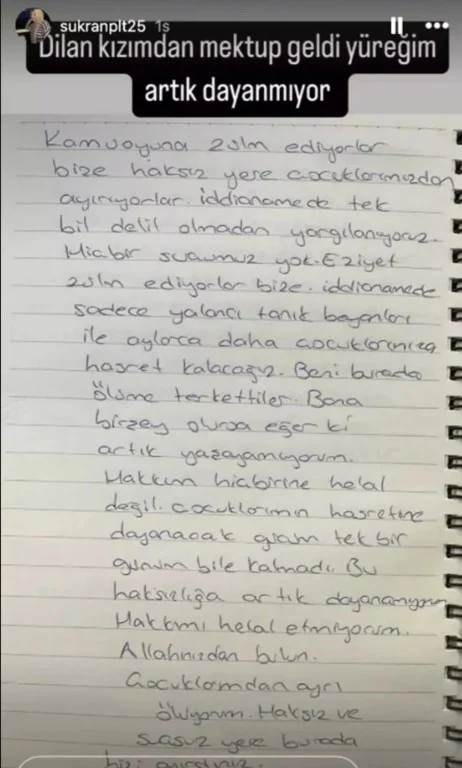 sukranplt25 1s
Dilan kızımdan mektup geldi yüreğim
artık dayanmıyor
Kamuoyuna zulm ediyorlar
bize haksız yere çocuklarımızdan
ayırıyorlar. iddianamede tek
bil delil olmadan yargılanıyoruz.
Hiçbir suçumuz yok. Eziyet
zulm ediyorlar bize. iddianamede
sadece yalancı tanık beyanları
ile aylarca daha çocuklarımıza
hasret kalacağız. Beni burada
ölüme terkettiler. Bana
birşey olursa eğer ki
artık yaşayamıyorum.
Hakkım hiçbirine helal
değil. Çocuklarımın hasretine
dayanacak gram tek bir
günüm bile kalmadı. Bu
haksızlığa artık dayanamıyorum
Hakkımı helal etmiyorum.
Allahınızdan bulun.
Çocuklarımdan ayrı
ölüyorum. Haksız ve
suçsuz yere burada
bizi